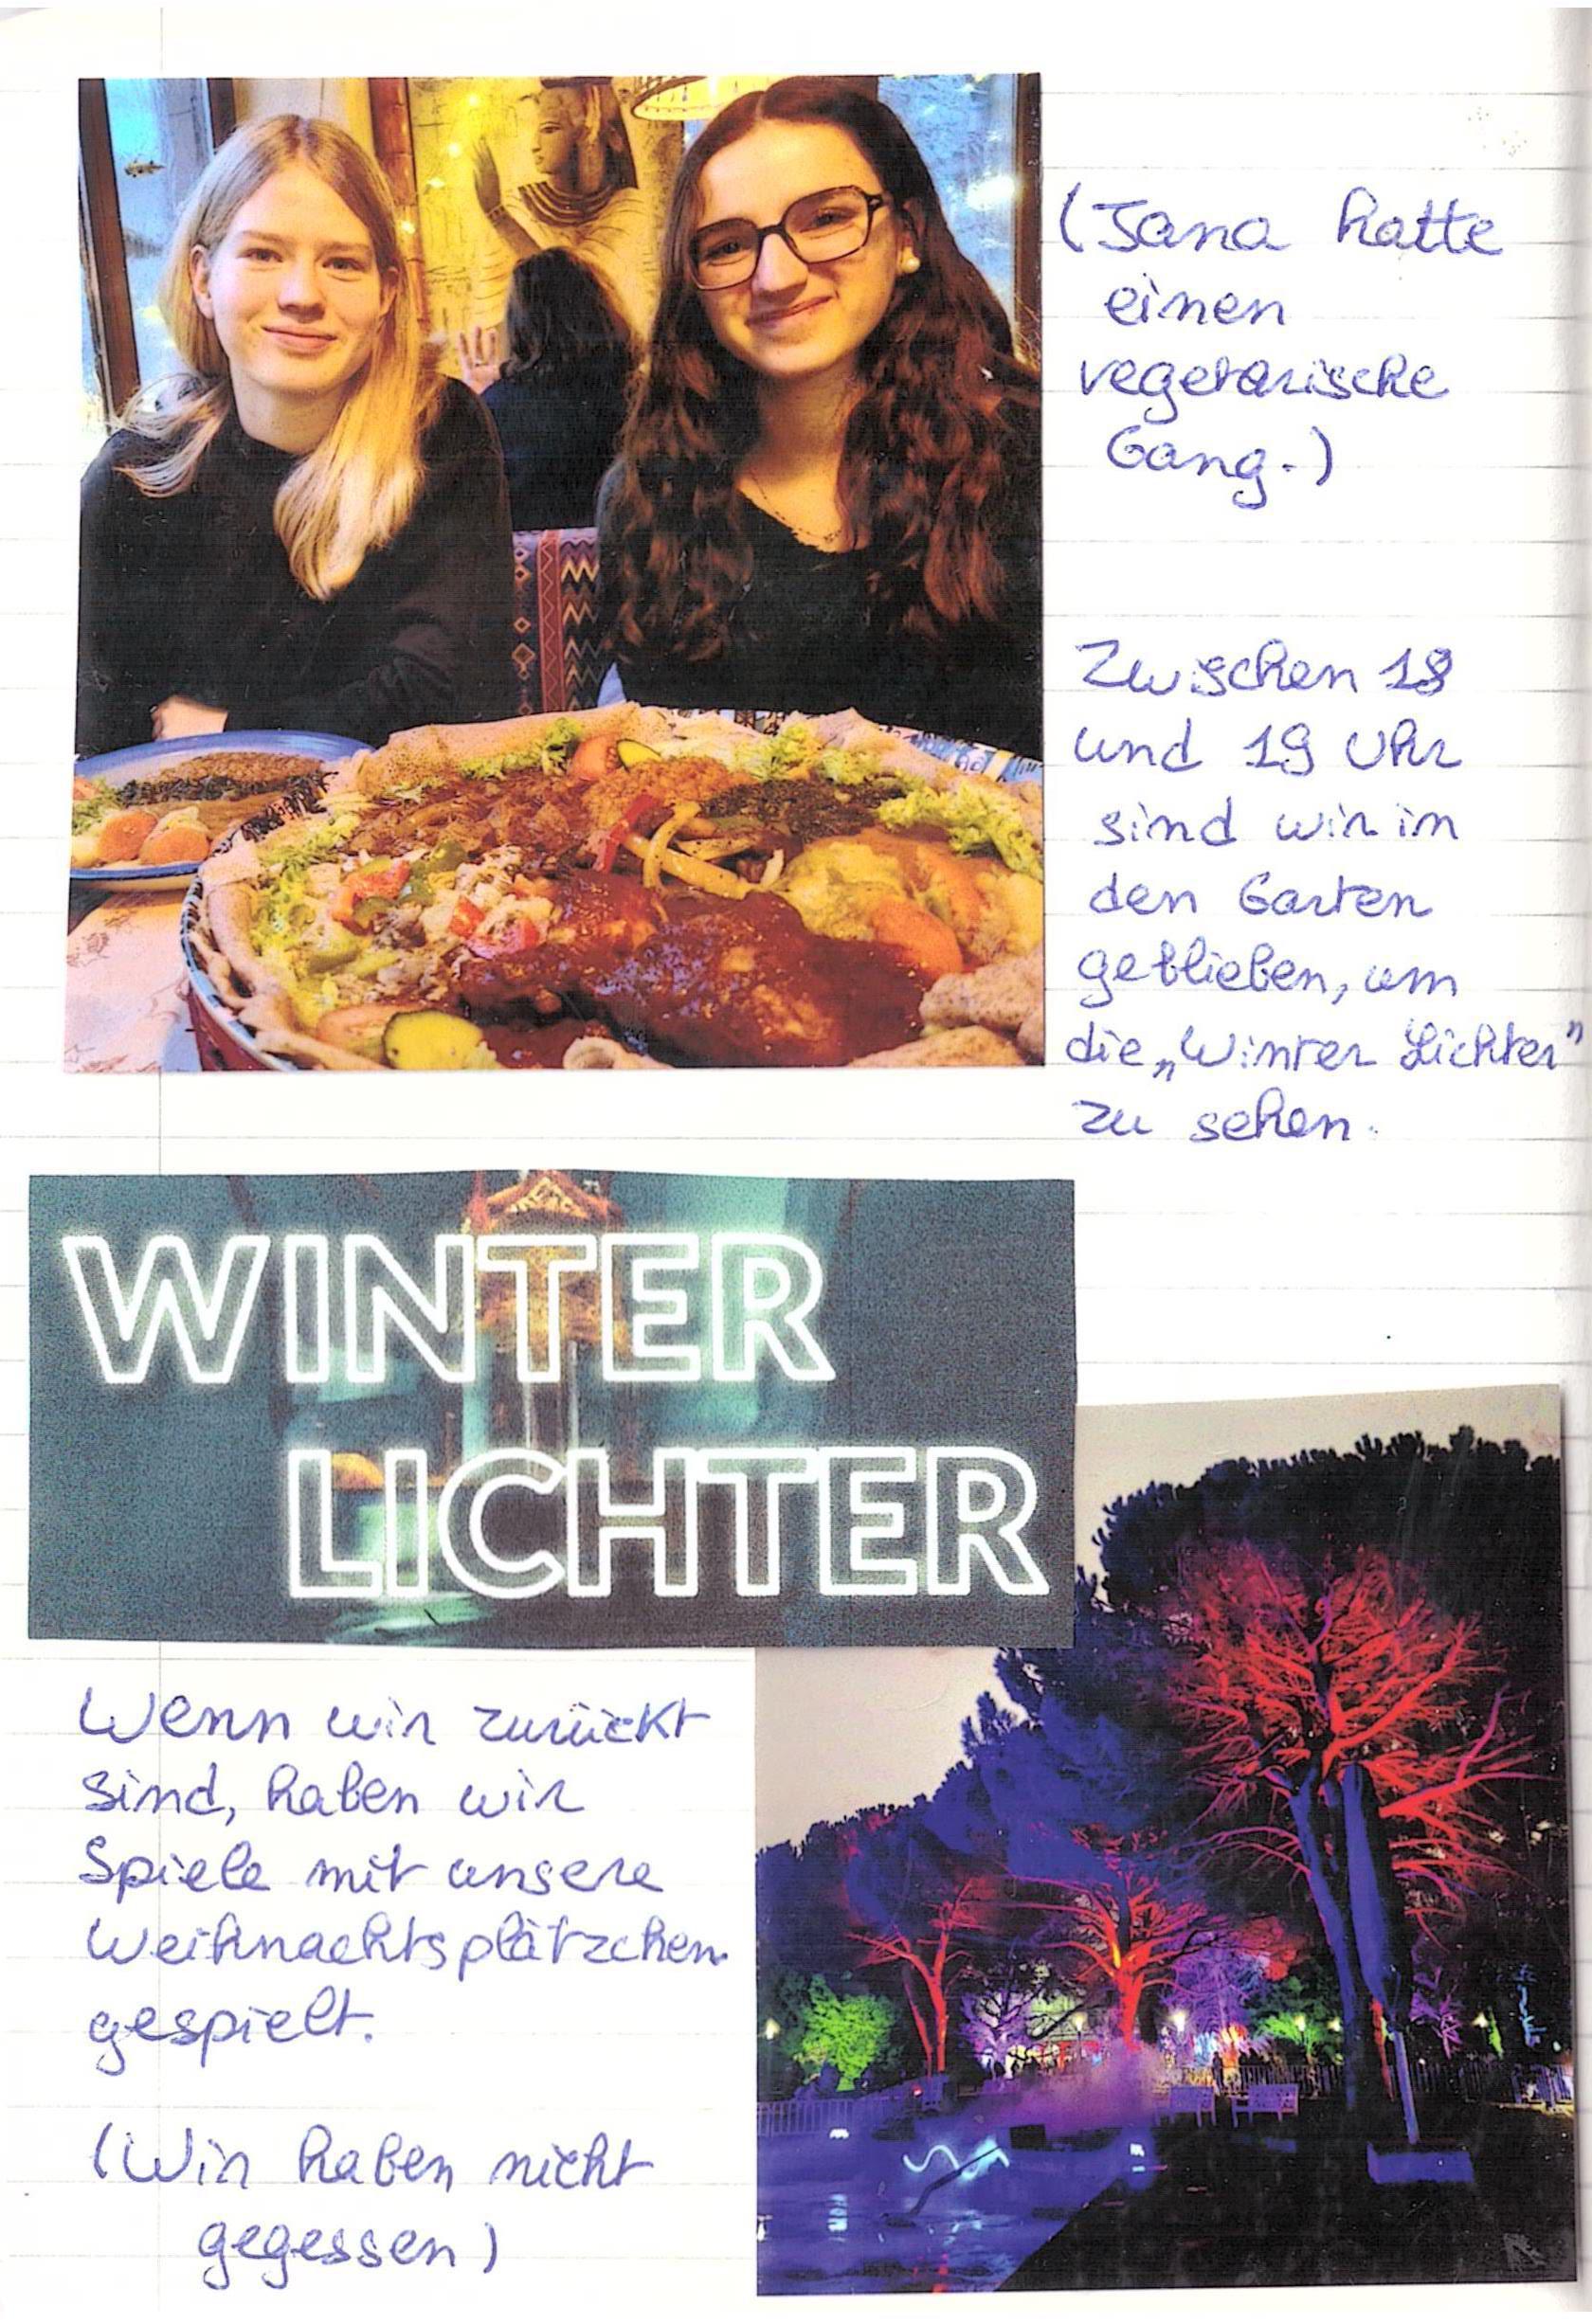 (Jana hatte
einen
vegetarische
Gang.)
Zwischen 18
und 19 Uhr
sind wir im
den Garten
geblieben, um
die „Winter Lichter"
zu sehen.
WINTER
LICHTER
Wenn wir zurückt
sind, haben wir
Spiele mit unsere
Weihnachtsplätzchen
gespielt.
(Wir haben nicht
gegessen)